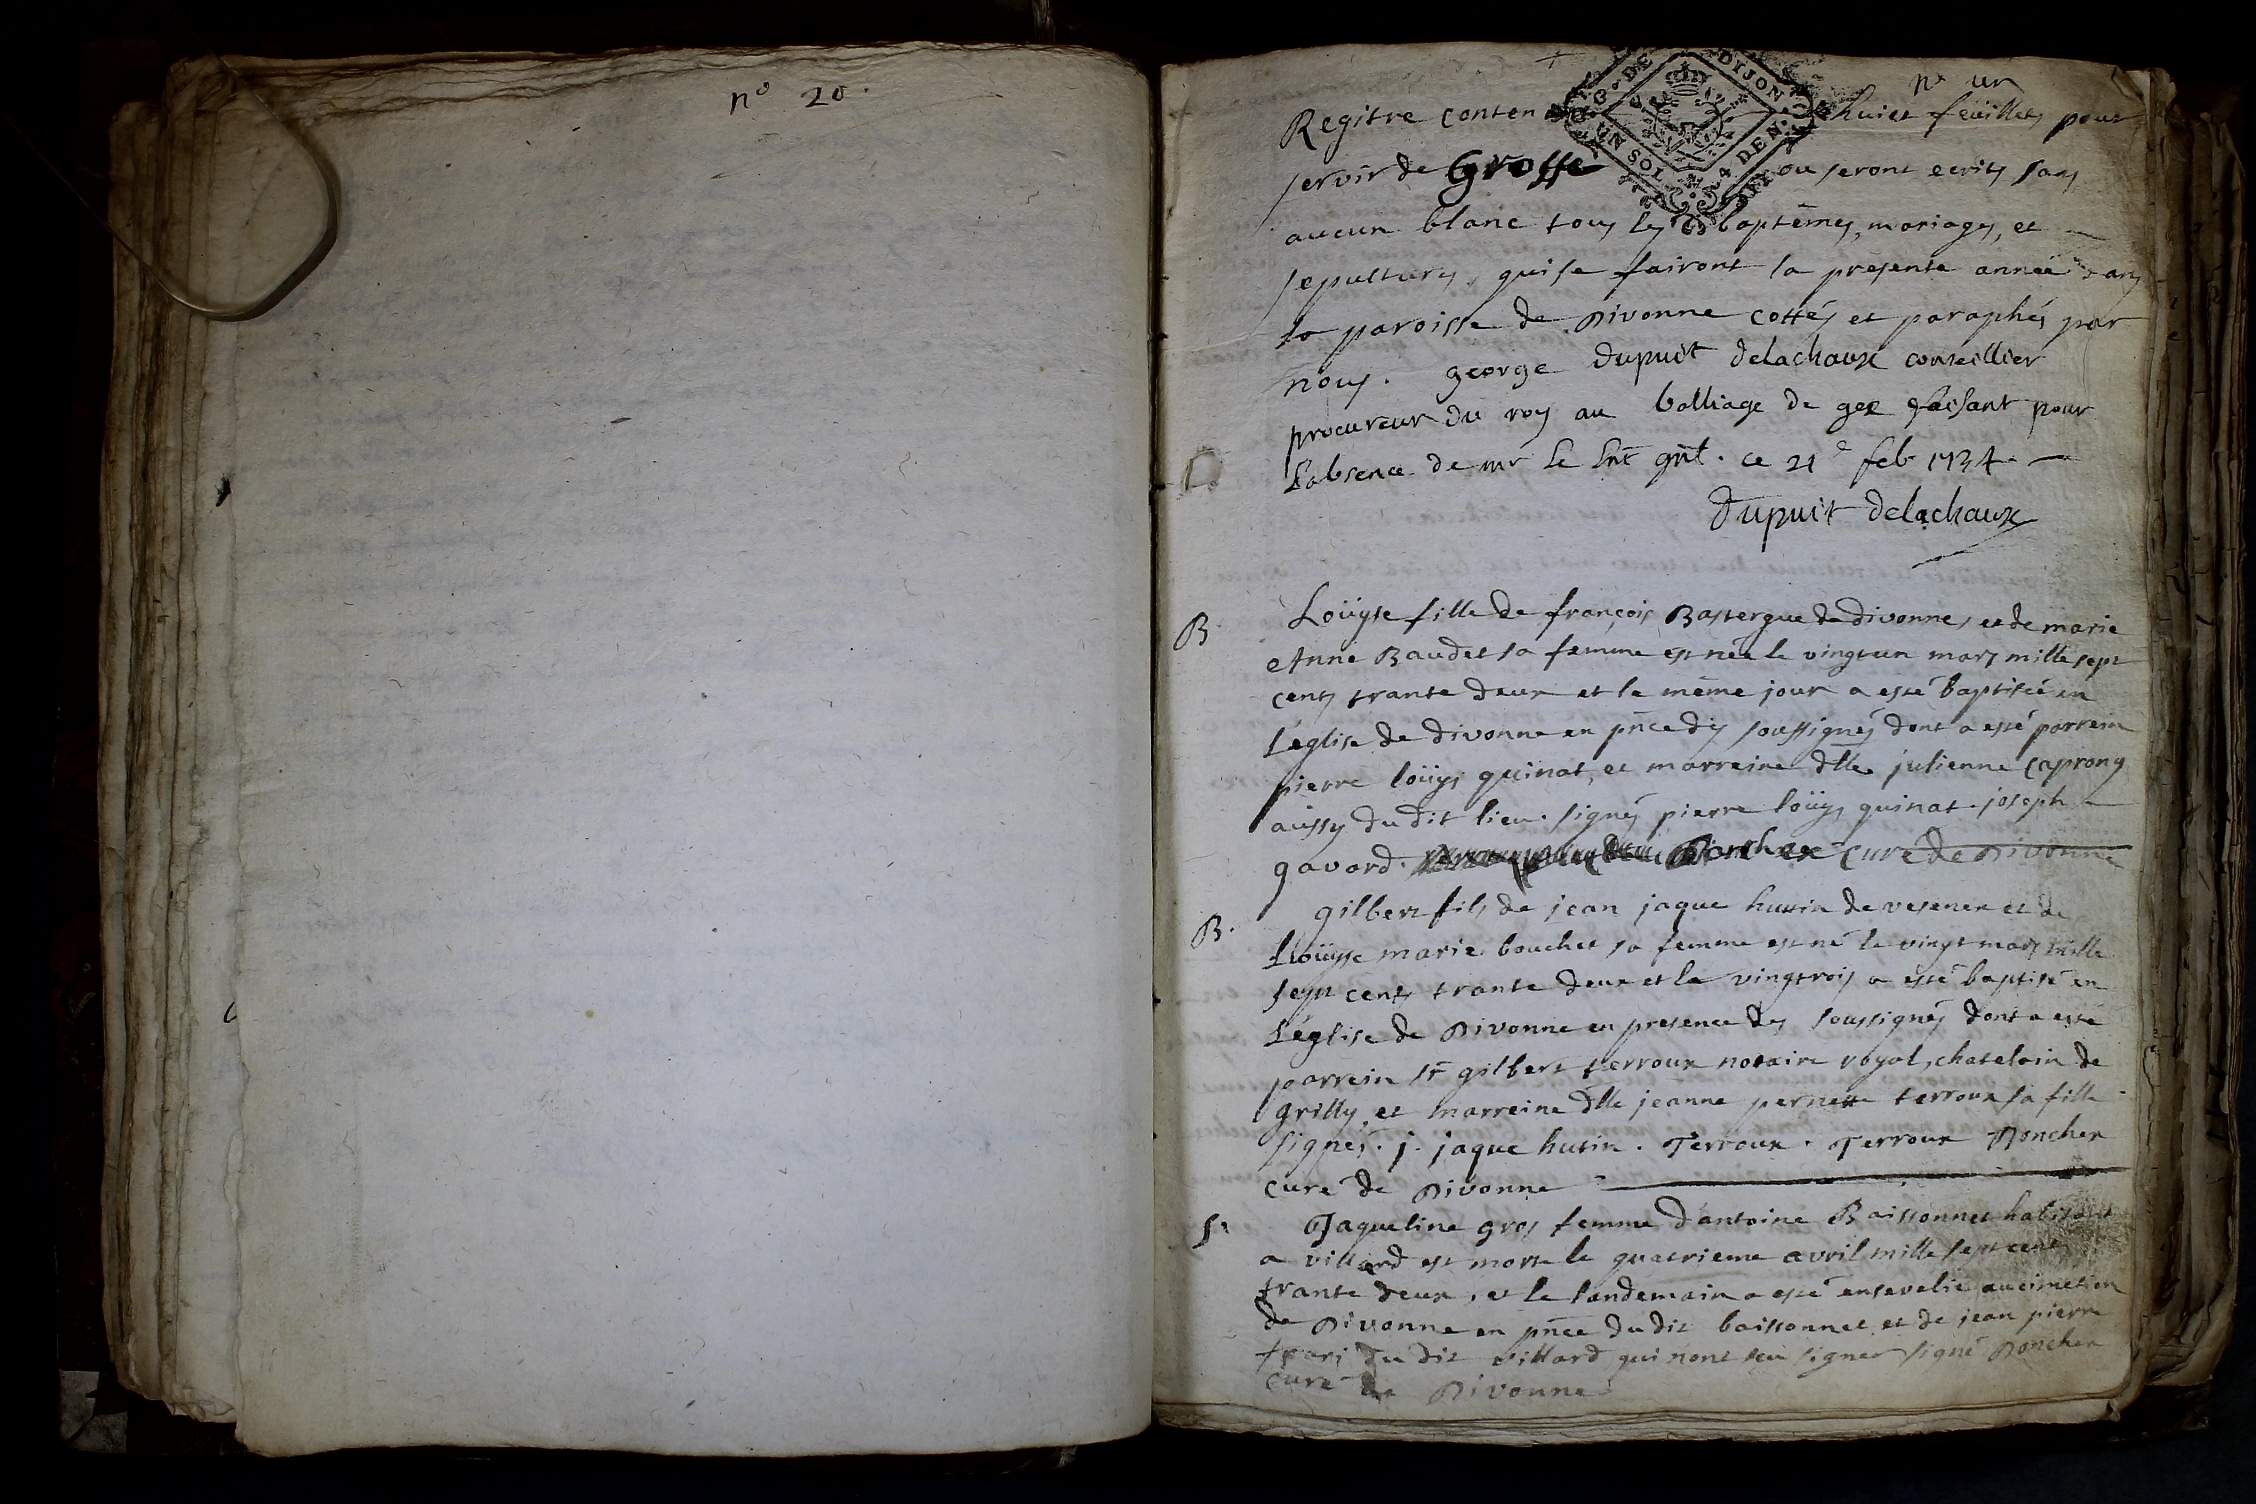 nº 20.
nº un
Regitre conten huict feüillets pour
servir de Grosse ou seront ecrits sans
aucun blanc tous les baptêmes, mariages, et
sepultures, qui se fairont la presente année dans
la paroisse de Divonne cottés et paraphés par
nous. george dupuit delachaux conseillier
procureur du roy au balliage de gex faisant pour
L'absence de mr le lnt gnl. ce 21e feb 1734.
dupuit delachaux
G. DE DIJON
UN SOL 4 DEN.
B
Loüyse fille de françois Bastergue de divonne, et de marie
Anne Baudet sa femme est née le vingt un mars mille sept
cents trante deux et le même jour a esté baptisée en
L'église de divonne en pnce des soussignés dont a esté parrein
pierre loüys quinat, et marreine dlle julienne caprony
aussy du dit lieu. signés pierre loüys quinat. joseph
gavard. Poncher curé de Divonne
B.
gilbert fils de jean jaque hutin de vesenex et de
Loüyse marie bouchet sa femme est né le vingt mars mille
sept cents trante deux et le vingtrois a esté baptisé en
L'église de Divonne en presence des soussignés dont a esté
parrein sr gilbert terroux notaire royal, chatelain de
grilly, et marreine dlle jeanne pernette terroux sa fille
signés. j. jaque hutin. Terroux. Terroux Poncher
curé de Divonne
S.
Jaqueline gros femme d'antoine Baissonnet habitant
a villard est morte le quatrieme avril mille sept cents
trante deux, et le landemain a esté ensevelie au cimetier
de Divonne en pnce du dit baissonnet et de jean pierre
du dit villard qui n'ont sçu signer signé Poncher
curé de Divonne